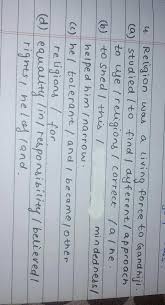 4 Religion was a living force to Gandhiji.
(a) studied / to find / different / approach
to use / religions / correct / a / ne.
(b) to shed / thus /
mindedness /
helped him / narrow.
(c) he / tolerant / and / became / other
religions / for.
(d) equality / in / responsibility / believed /
rights, he / of / and.